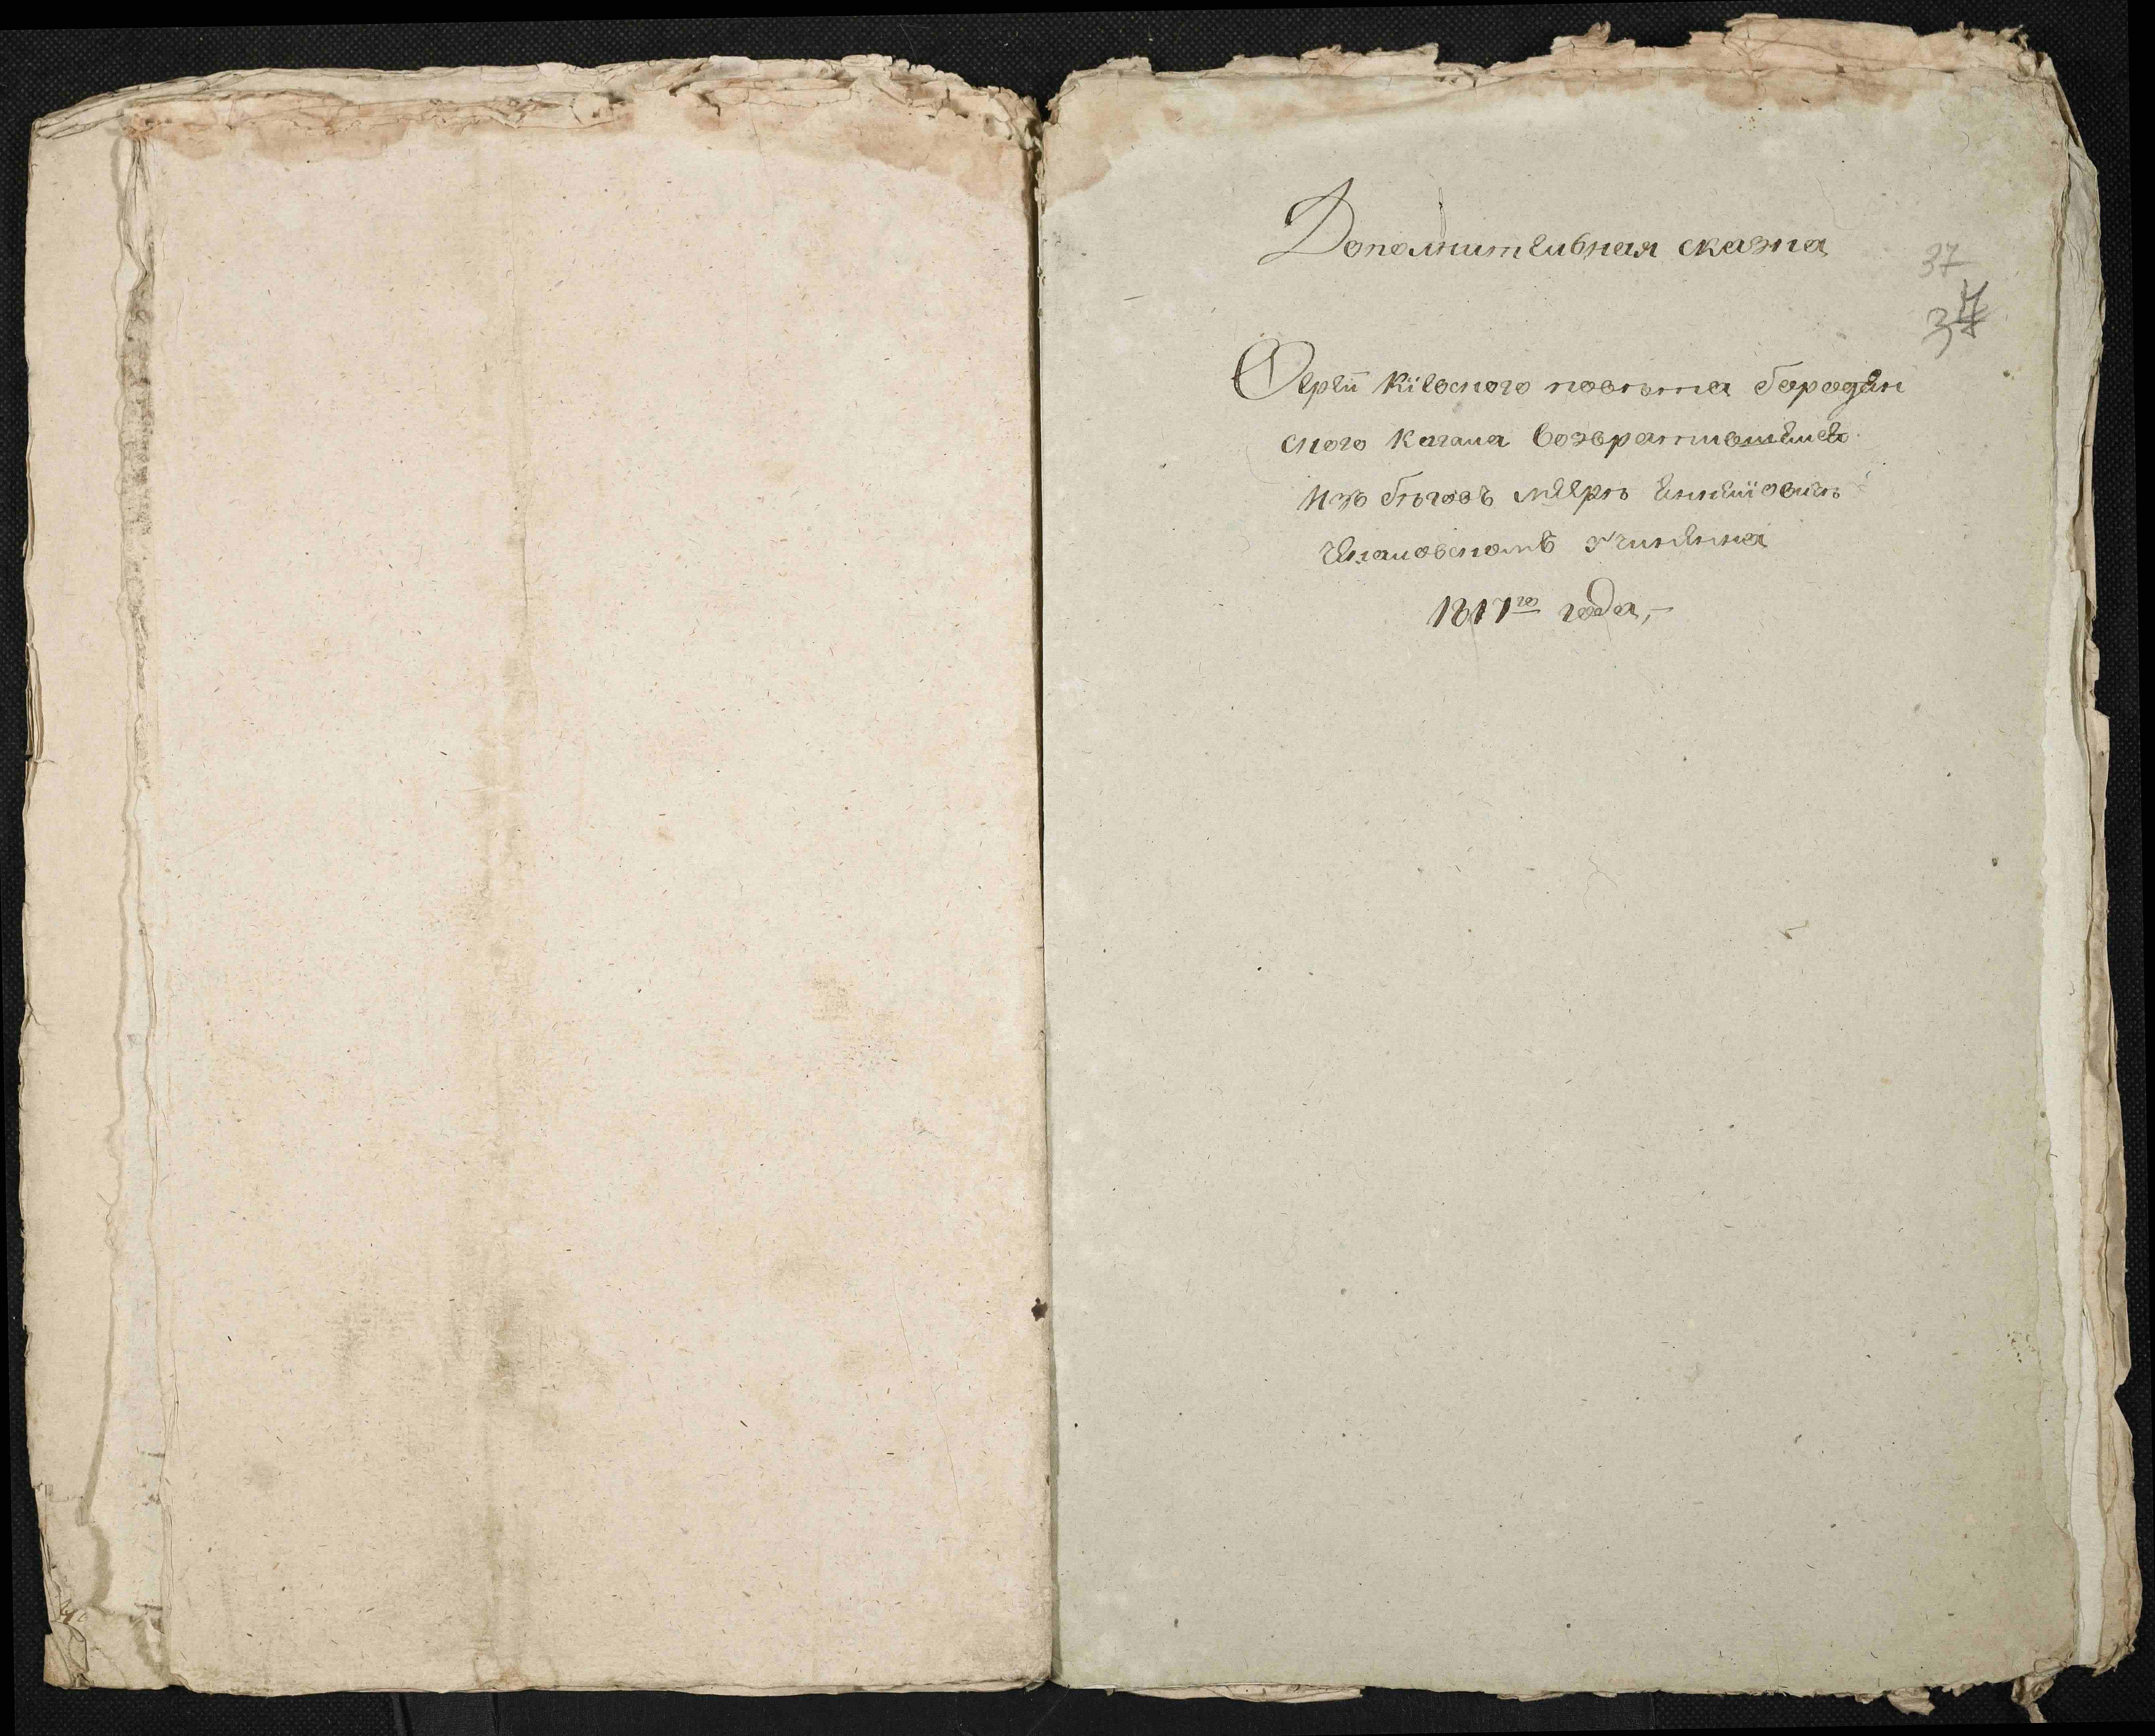 Дополнительная сказка
37
37
Овреи Кіевского повѣта бородян
ского кагала возвратившимся
изъ бѣговъ
учинена
1817го года,-